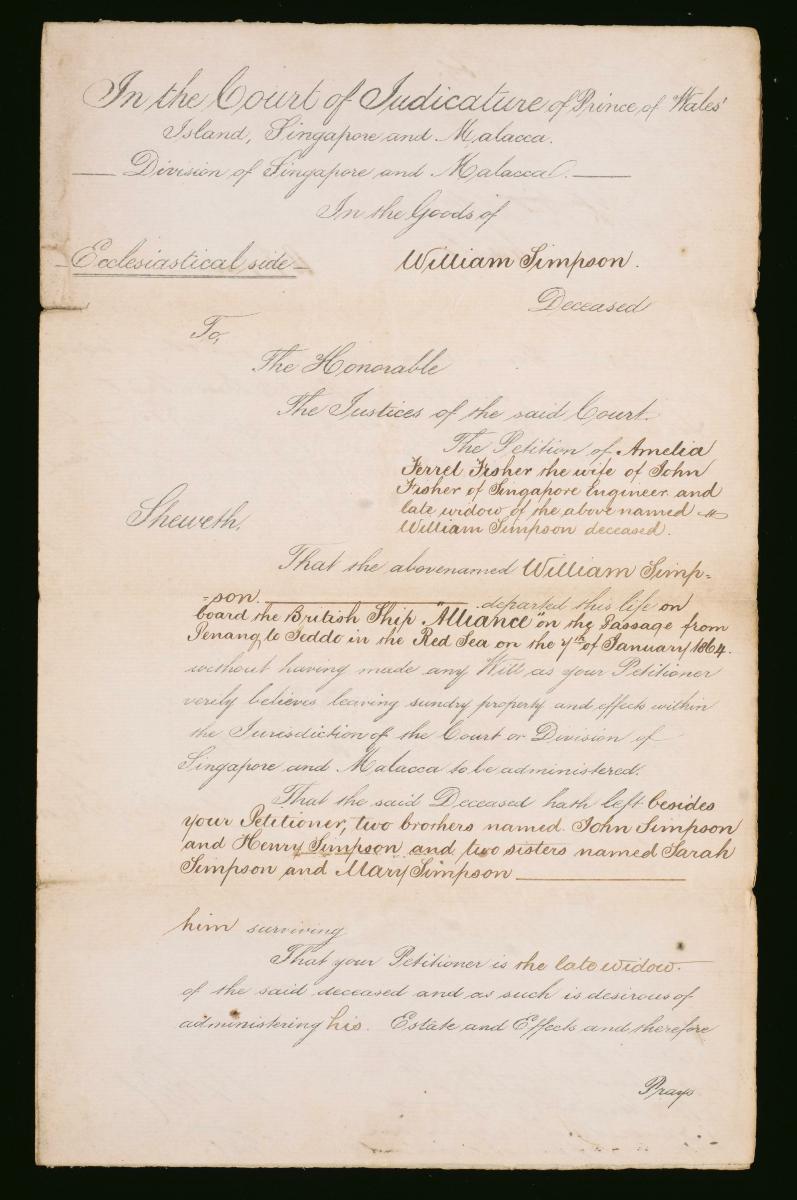 In the Court of Judicature of Prince of Wales'
Island, Singapore and Malacca.
Division of Singapore and Malacca.
In the Goods of
Ecclesiastical side
William Simpson.
Deceased
To,
The Honorable
The Justices of the said Court.
The Petition of Amelia
Ferrel Fisher the wife of John
Fisher of Singapore Engineer and
late widow of the above named
William Simpson deceased.
Sheweth.
That the abovenamed William Simp-
-son. departed this life on
board the British Ship "Alliance" on the Passage from
Penang to Jeddo in the Red Sea on the 7th of January 1864.
without having made any Will as your Petitioner
verily believes leaving sundry property and effects within
the Jurisdiction of the Court or Division of
Singapore and Malacca to be administered.
That the said Deceased hath left besides
your Petitioner, two brothers named John Simpson
and Henry Simpson and two sisters named Sarah
Simpson and Mary Simpson
him surviving
That your Petitioner is the late widow
of the said deceased and as such is desirous of
administering his Estate and Effects and therefore
Prays